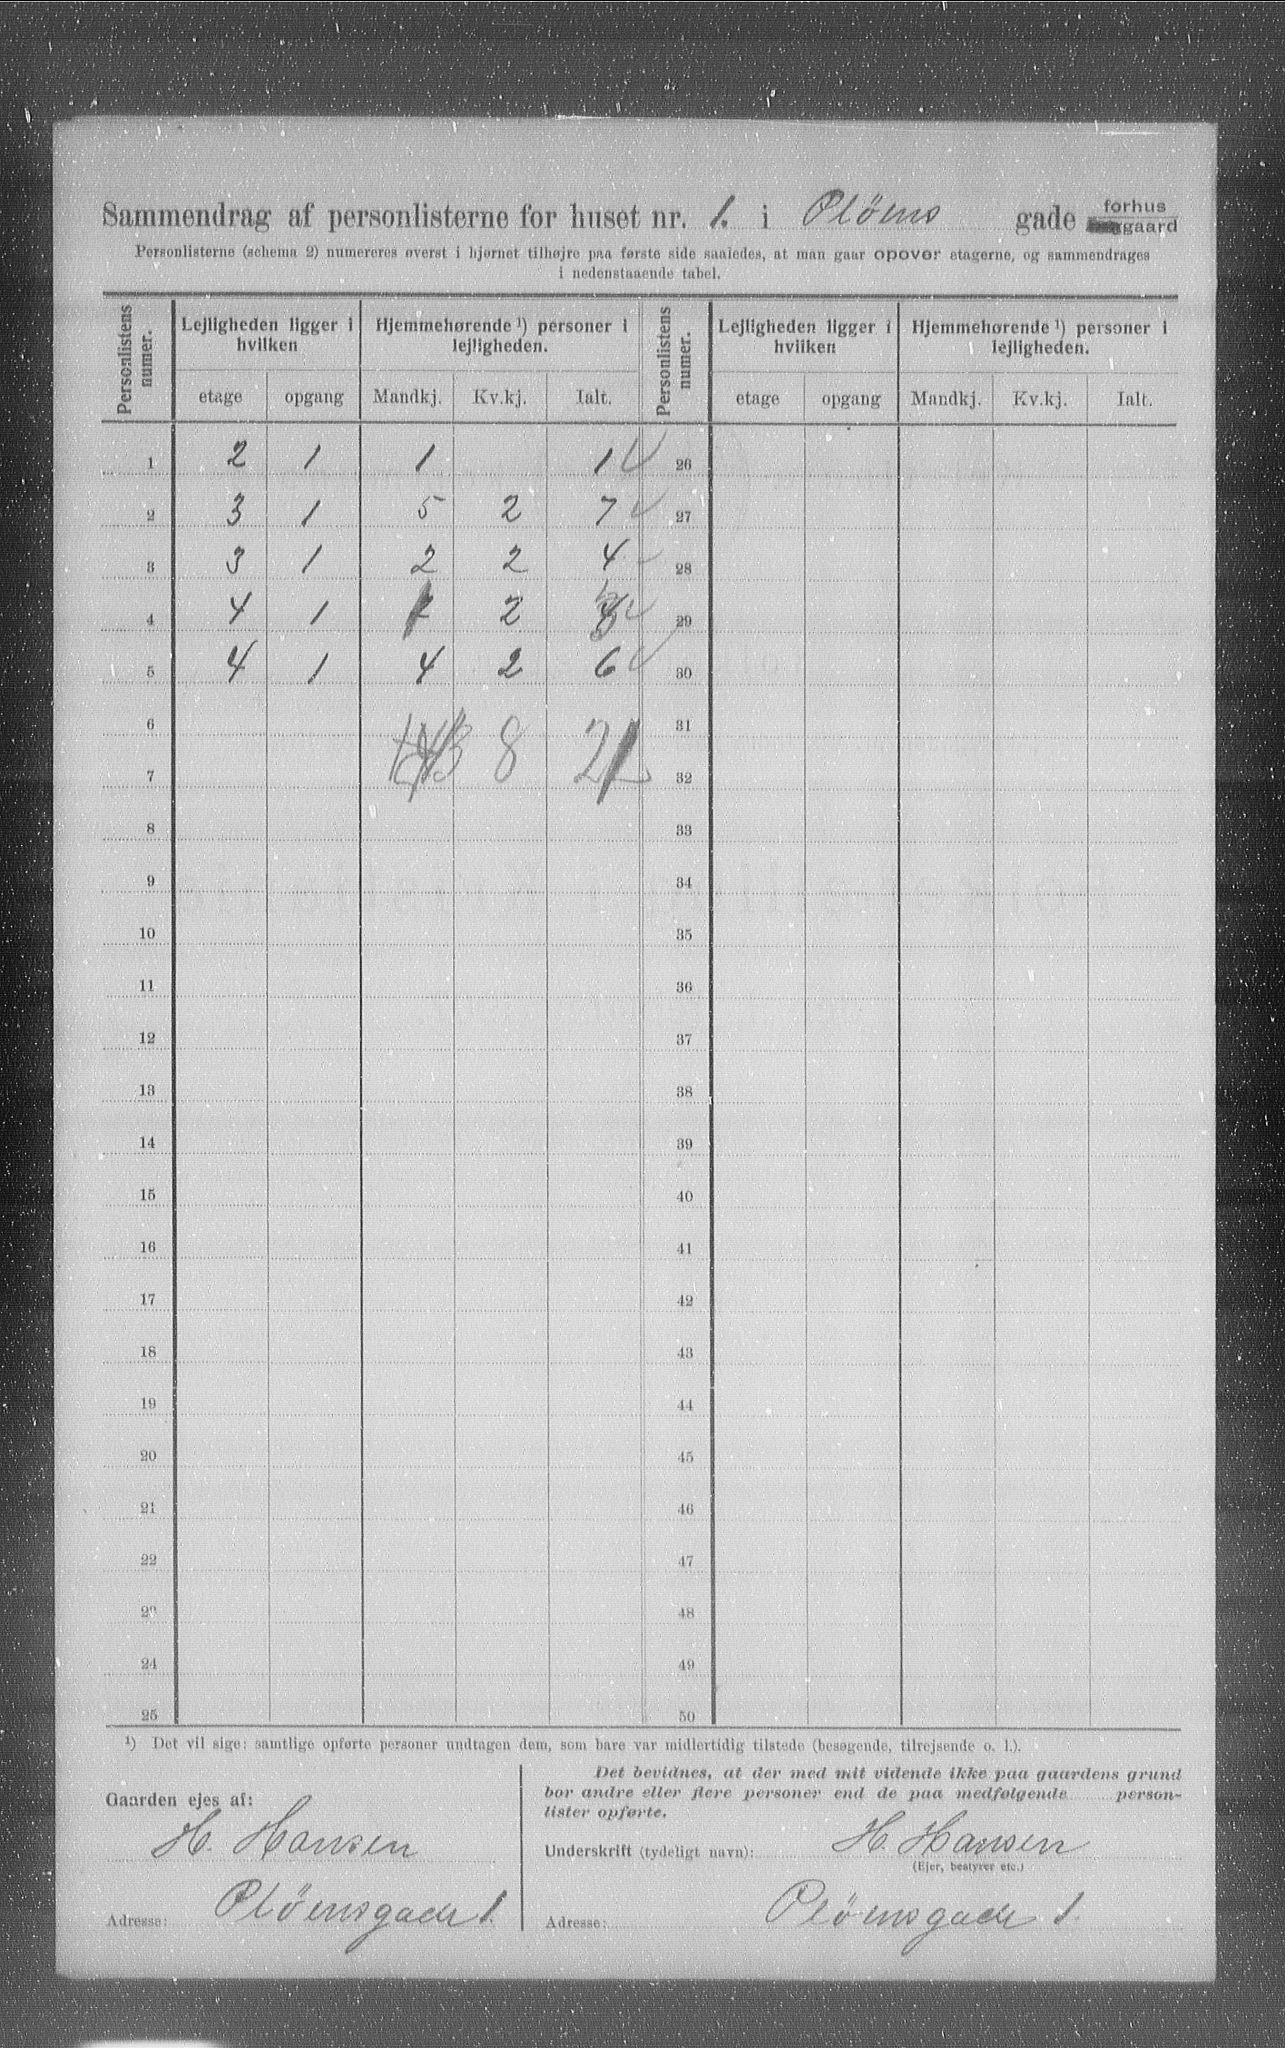 Sammendrag af personlisterne for huset nr. 1. i Plöens gade forhus
gaard
Personlisterne (schema 2) numereres øverst i hjørnet tilhøjre paa første side saaledes, at man gaar opover etagerne, og sammendrages
i nedenstaaende tabel.
Personlistens numer. Lejligheden ligger i hvilken Hjemmehørende ¹) personer i lejligheden. Personlistens numer. Lejligheden ligger i hvilken Hjemmehørende ¹) personer i lejligheden.
etage opgang Mandkj. Kv.kj. Ialt. etage opgang Mandkj. Kv.kj. Ialt.
1 2 1 1 1 26
2 3 1 5 2 7 27
3 3 1 2 2 4 28
4 4 1 2 29
5 4 1 4 2 6 30
6 31
7 8 32
8 33
9 34
10 35
11 36
12 37
13 38
14 39
15 40
16 41
17 42
18 43
19 44
20 45
21 46
22 47
23 48
24 49
25 50
¹) Det vil sige: samtlige opførte personer undtagen dem, som bare var midlertidig tilstede (besøgende, tilrejsende o. l.).
Gaarden ejes af:
H. Hansen
Adresse: Plöensgade 1.
Det bevidnes, at der med mit vidende ikke paa gaardens grund
bor andre eller flere personer end de paa medfølgende person-
lister opførte.
Underskrift (tydeligt navn): H. Hansen
(Ejer, bestyrer etc.)
Adresse: Plöensgade 1.